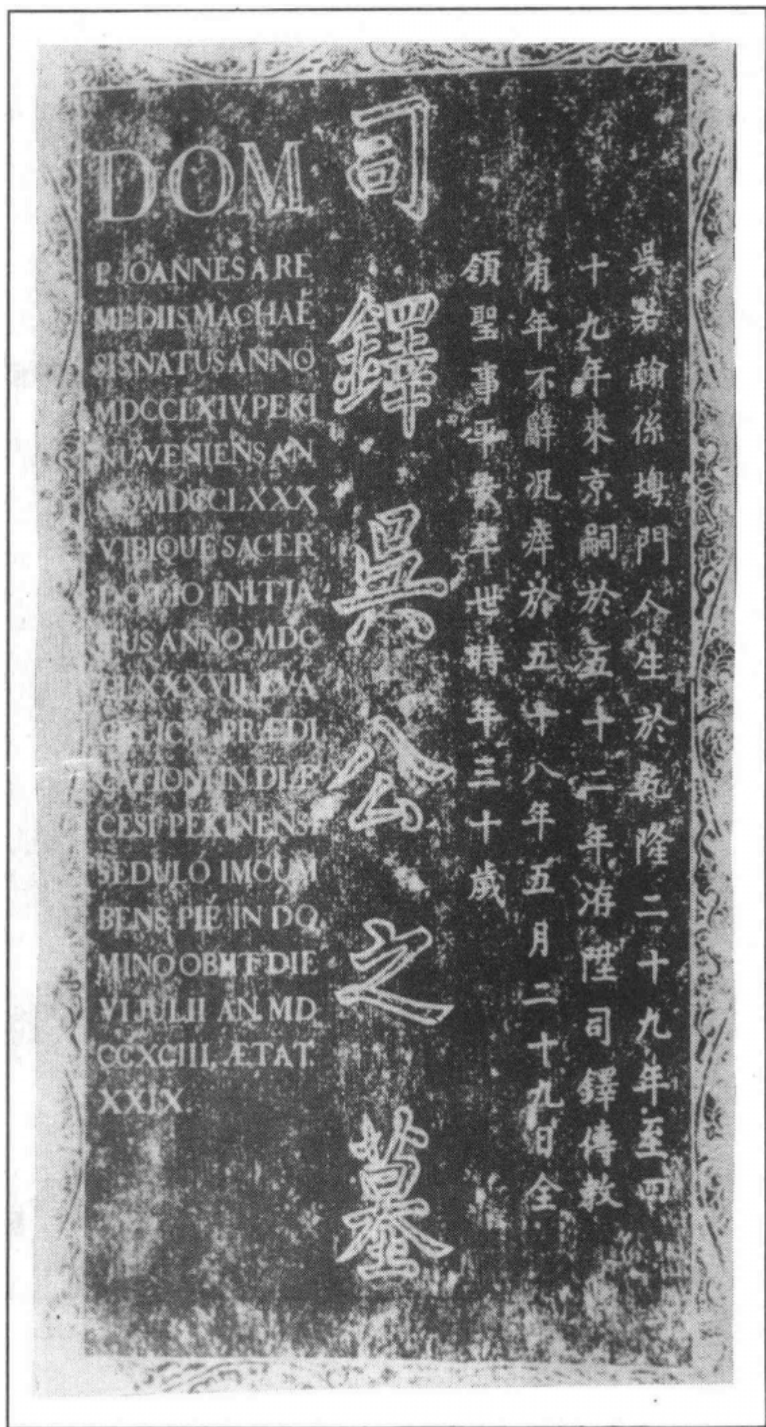 吳若翰係墺門人生於乾隆二十九年至四
十九年來京嗣於五十二年洊陞司鐸傳教
有年不辭况瘁於五十八年五月二十九日全
領聖事平安卒世時年三十歲
司鐸吳公之墓
DOM
P. JOANNES A RE
MEDIIS MACHAË
SIS NATUS ANNO
MDCCLXIV, PEKI
NU VENIENS AN
NO MDCCLXXX
V IBIQUE SACER
DOTIO INITIA
TUS ANNO MDC
CLXXXVII, EVA
GELICÆ PRÆDI
CATIONI IN DIÆ
CESI PEKINENSI
SEDULÒ IMCUM
BENS PIÈ IN DO
MINO OBIIT DIE
VI JULII AN. MD
CCXCIII, ÆTAT.
XXIX.